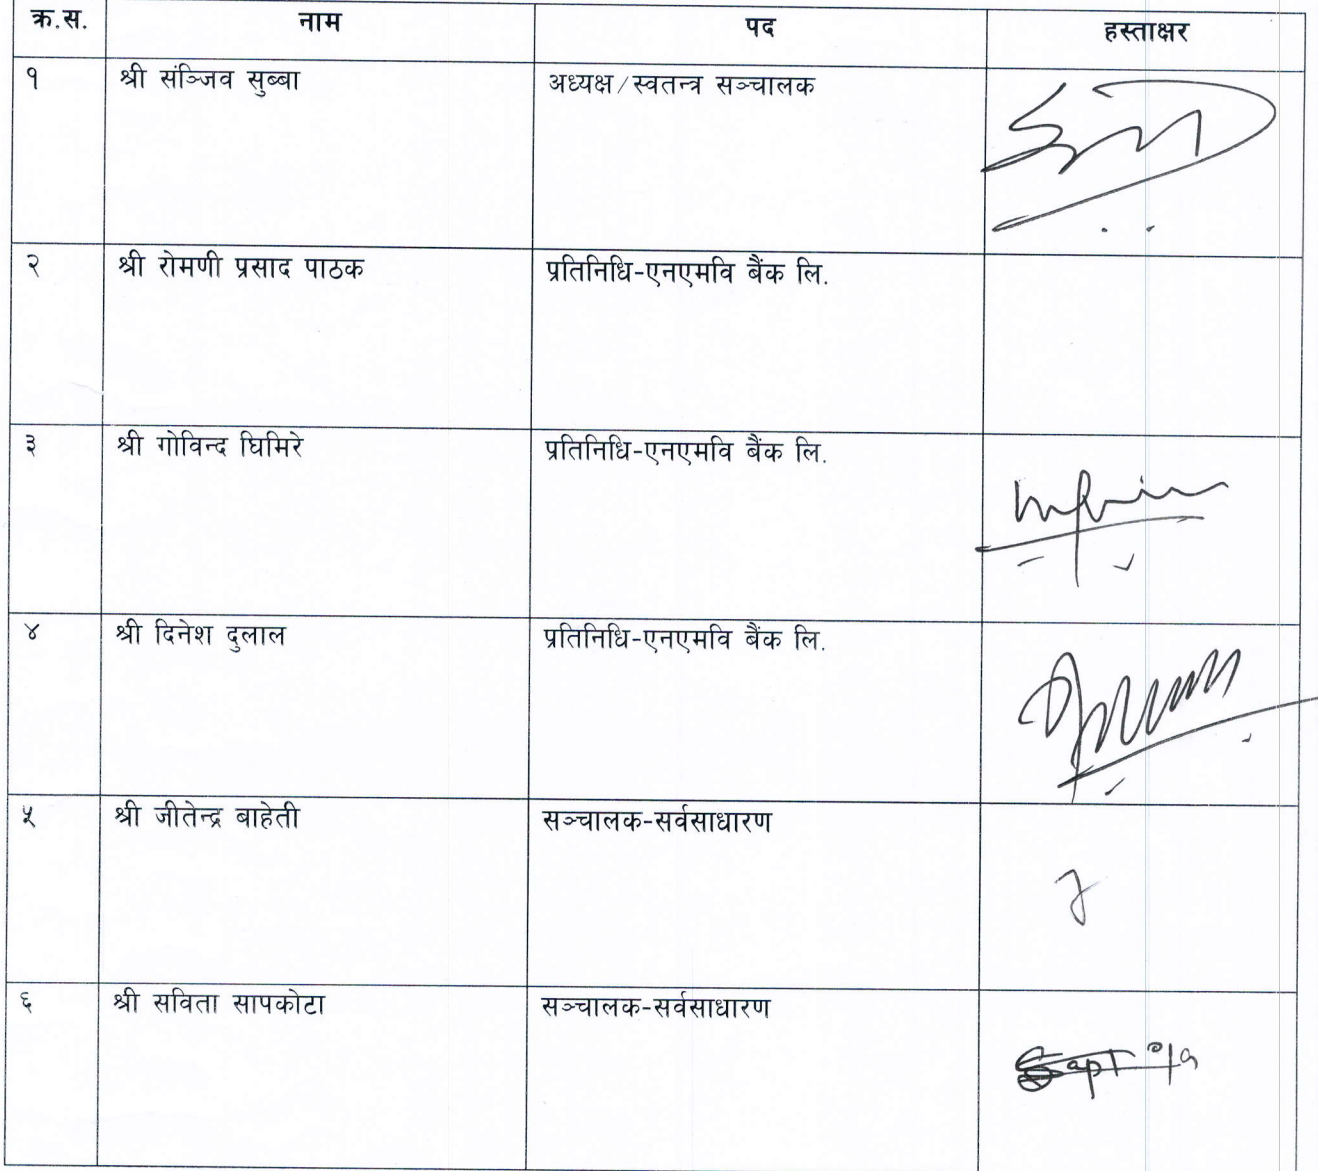 क्र.स. नाम पद हस्ताक्षर
१ श्री संञ्जिव सुब्बा अध्यक्ष/स्वतन्त्र सञ्चालक
२ श्री रोमणी प्रसाद पाठक प्रतिनिधि-एनएमवि बैंक लि.
३ श्री गोविन्द घिमिरे प्रतिनिधि-एनएमवि बैंक लि.
४ श्री दिनेश दुलाल प्रतिनिधि-एनएमवि बैंक लि.
५ श्री जीतेन्द्र बाहेती सञ्चालक-सर्वसाधारण
६ श्री सविता सापकोटा सञ्चालक-सर्वसाधारण